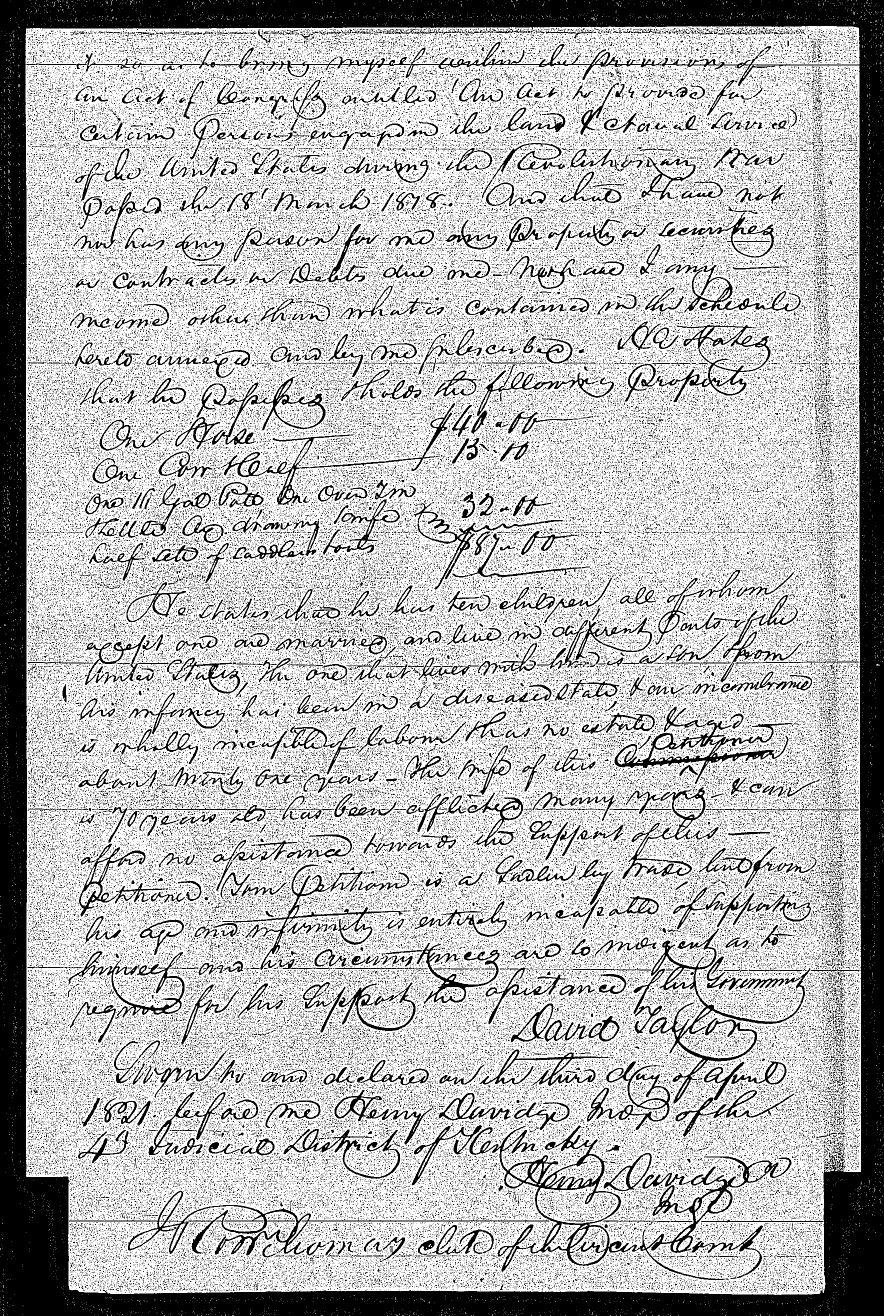 it so as to bring myself within the provisions of
an act of Congress entitled "An act to provide for
certain persons engagd in the land & naval service
of the United States during the Revolutionary War
passed the 18t March 1818. And that I have not
nor has any person for me any Property or securities
or contracts or Debts due me - nor have I any
income other than what is contained in the Schedule
hereto annexed and by me subscribed. He States
that he possesses & holds the following Property
One Horse $40-00
One Cow & Calf 15.00
One 10 Gal Pott One Oven 7 in
Kettle Ax drawing knife & 32-00
half sett of saddlers tools $87-00
He states that he has ten children, all of whom
except one are married, and live in different Parts of the
United States, The one that lives with him is a son & from
his infancy has been in a diseased state, & an
is wholly incapable of labour & has no estate & aged
about twenty one years - The wife of this Petitioner
is 70 years old, has been afflicted many years & can
afford no assistance towards the Support of this
petitioner. Your Petitioner is a Sadler by trade, but from
his age and infirmity is entirely incapable of supporting
himself and his circumstances are so indigent as to
require for his Support the assistance of his Government
David Taylor
Sworn to and declared on the third day of April
1821 before me Henry Davidge Judge of the
4th Judicial District of Kentucky.
Henry Davidge
Judge
Thomas clerk of the Circuit Court